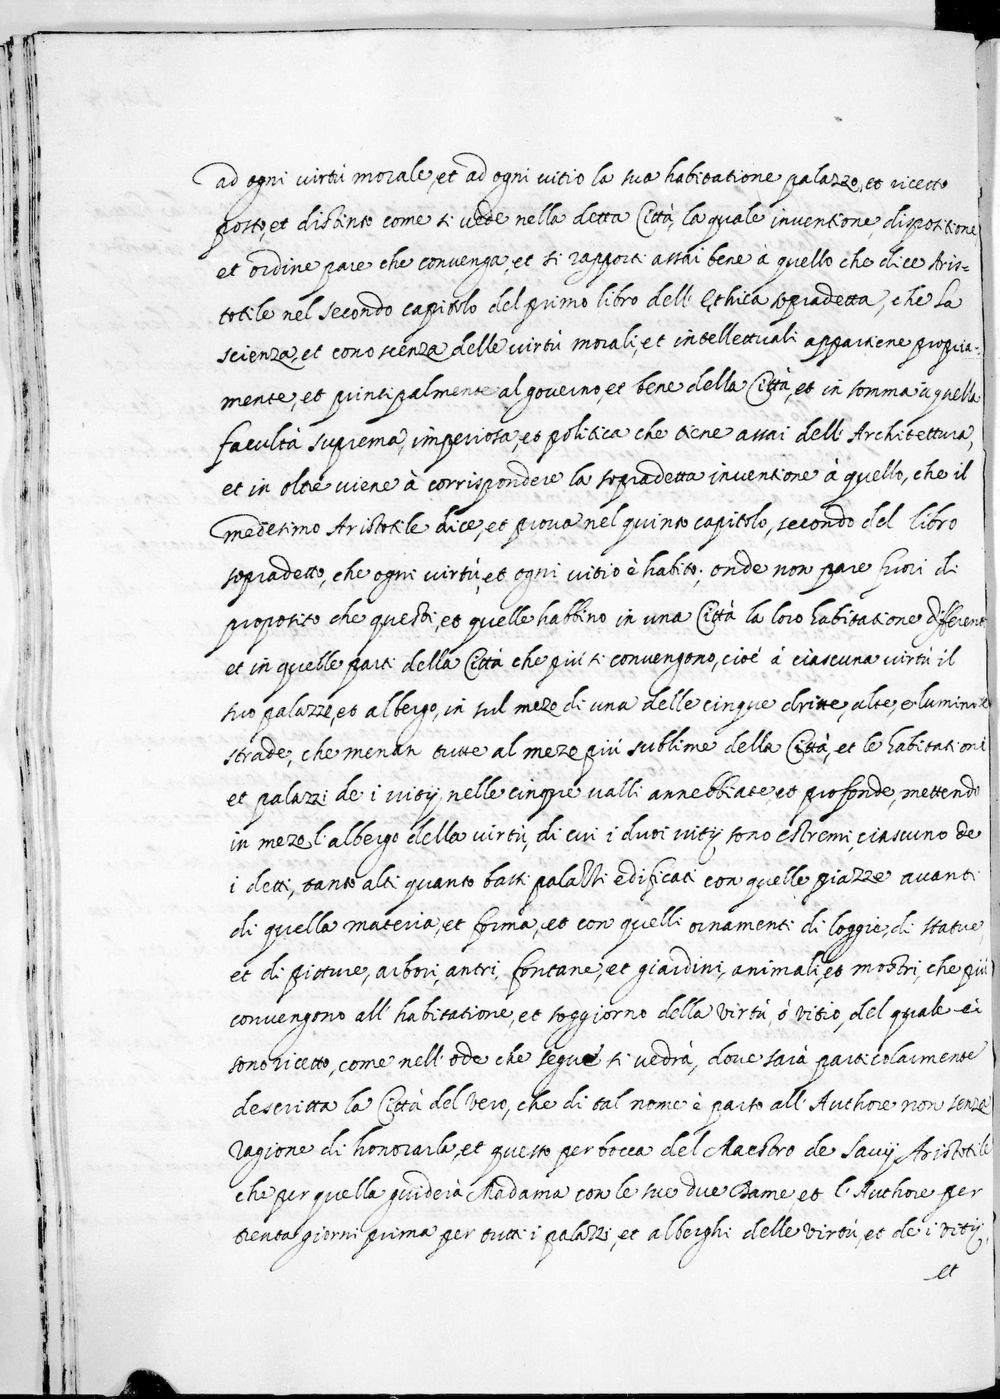 ad ogni virtù morale, et ad ogni vitio la sua habitatione palazzo, et ricetto
posto, et distinto come si vede nella detta Città, la quale inventione, dispositione
et ordine pare che convenga, et si rapporti assai bene à quello che dice Aris-
totile nel secondo capitolo del primo libro dell' Ethica sopradetta, che la
scienza, et conoscenza delle virtù morali, et intellettuali appartiene propria-
mente, et printipalmente al governo, et bene della Città, et in somma à quella
facultà suprema, imperiosa, et politica che tiene assai dell' Architettura,
et in oltre viene à corrispondere la sopradetta inventione à quello, che il
medesimo Aristotile dice, et prova nel quinto capitolo, secondo del libro
sopradetto, che ogni virtù, et ogni vitio è habito; onde non pare fuori di
proposito che questi, et quelle habbino in una Città la loro habitatione different
et in quelle parti della Città che più si convengono, cioè à ciascuna virtù il
suo palazzo, et albergo, in sul mezo di una delle cinque dritte, alte, e luminose
strade, che menan tutte al mezo più sublime della Città, et le habitationi
et palazzi de i vitij nelle cinque valli annebbiate, et profonde, mettendo
in mezo l'albergo della virtù, di cui i duoi vitij sono estremi, ciascuno de
i detti, tanto alti quanto bassi palazzi edificati con quelle piazze avanti
di quella materia, et forma, et con quelli ornamenti di loggie, di statue,
et di pitture, arbori, antri, fontane, et giardini, animali, et mostri, che più
convengono all' habitatione, et soggiorno della virtù, ò vitio, del quale ei
sono ricetto, come nell' ode che segue si vedrà, dove sarà particolarmente
descritta la Città del Vero, che di tal nome è parso all' Authore non senza
ragione di honorarla, et questo per bocca del Maestro de Savij Aristotile
che per quella guiderà Madama con le sue due Dame et l'Authore per
trenta giorni prima per tutti i palazzi, et alberghi delle virtù, et de i vitij,
et